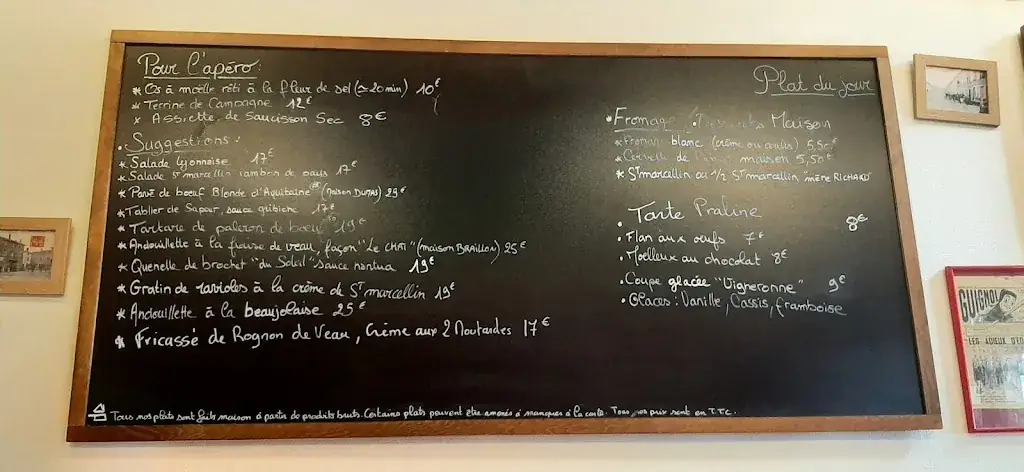 Pour l'apéro:
* Os à moelle rôti à la fleur de sel (≃ 20 min) 10€
* Terrine de Campagne 12€
* Assiette de Saucisson Sec 8€
• Suggestions:
* Salade lyonnaise 17€
* Salade St marcellin jambon de pays 17€
* Pavé de boeuf Blonde d'Aquitaine (maison DUMAS) 29€
* Tablier de Sapeur, sauce gribiche 17€
* Tartare de paleron de boeuf 19€
* Andouillette à la fraise de veau, façon "Le CHTI" (maison BRAILLON) 25€
* Quenelle de brochet "du Soleil" sauce nantua 19€
* Gratin de ravioles à la crème de St marcellin 19€
* Andouillette à la beaujolaise 25€
* Fricassé de Rognon de Veau, Crème aux 2 Moutardes 17€
Tous nos plats sont faits maison à partir de produits bruts. Certains plats peuvent être amenés à manquer à la carte. Tous nos prix sont en T.T.C.
Plat du jour
• Fromage • Desserts Maison
* Fromage blanc (crème ou coulis) 5,50
* Cervelle de Canut maison 5,50€
* St marcellin ou 1/2 St marcellin "mère RICHARD"
• Tarte Praline 8€
• Flan aux oeufs 7€
• Moelleux au chocolat 8€
• Coupe glacée "Vigneronne" 9€
• Glaces: Vanille, Cassis, framboise
GUIGNOL
LES ADIEUX D'